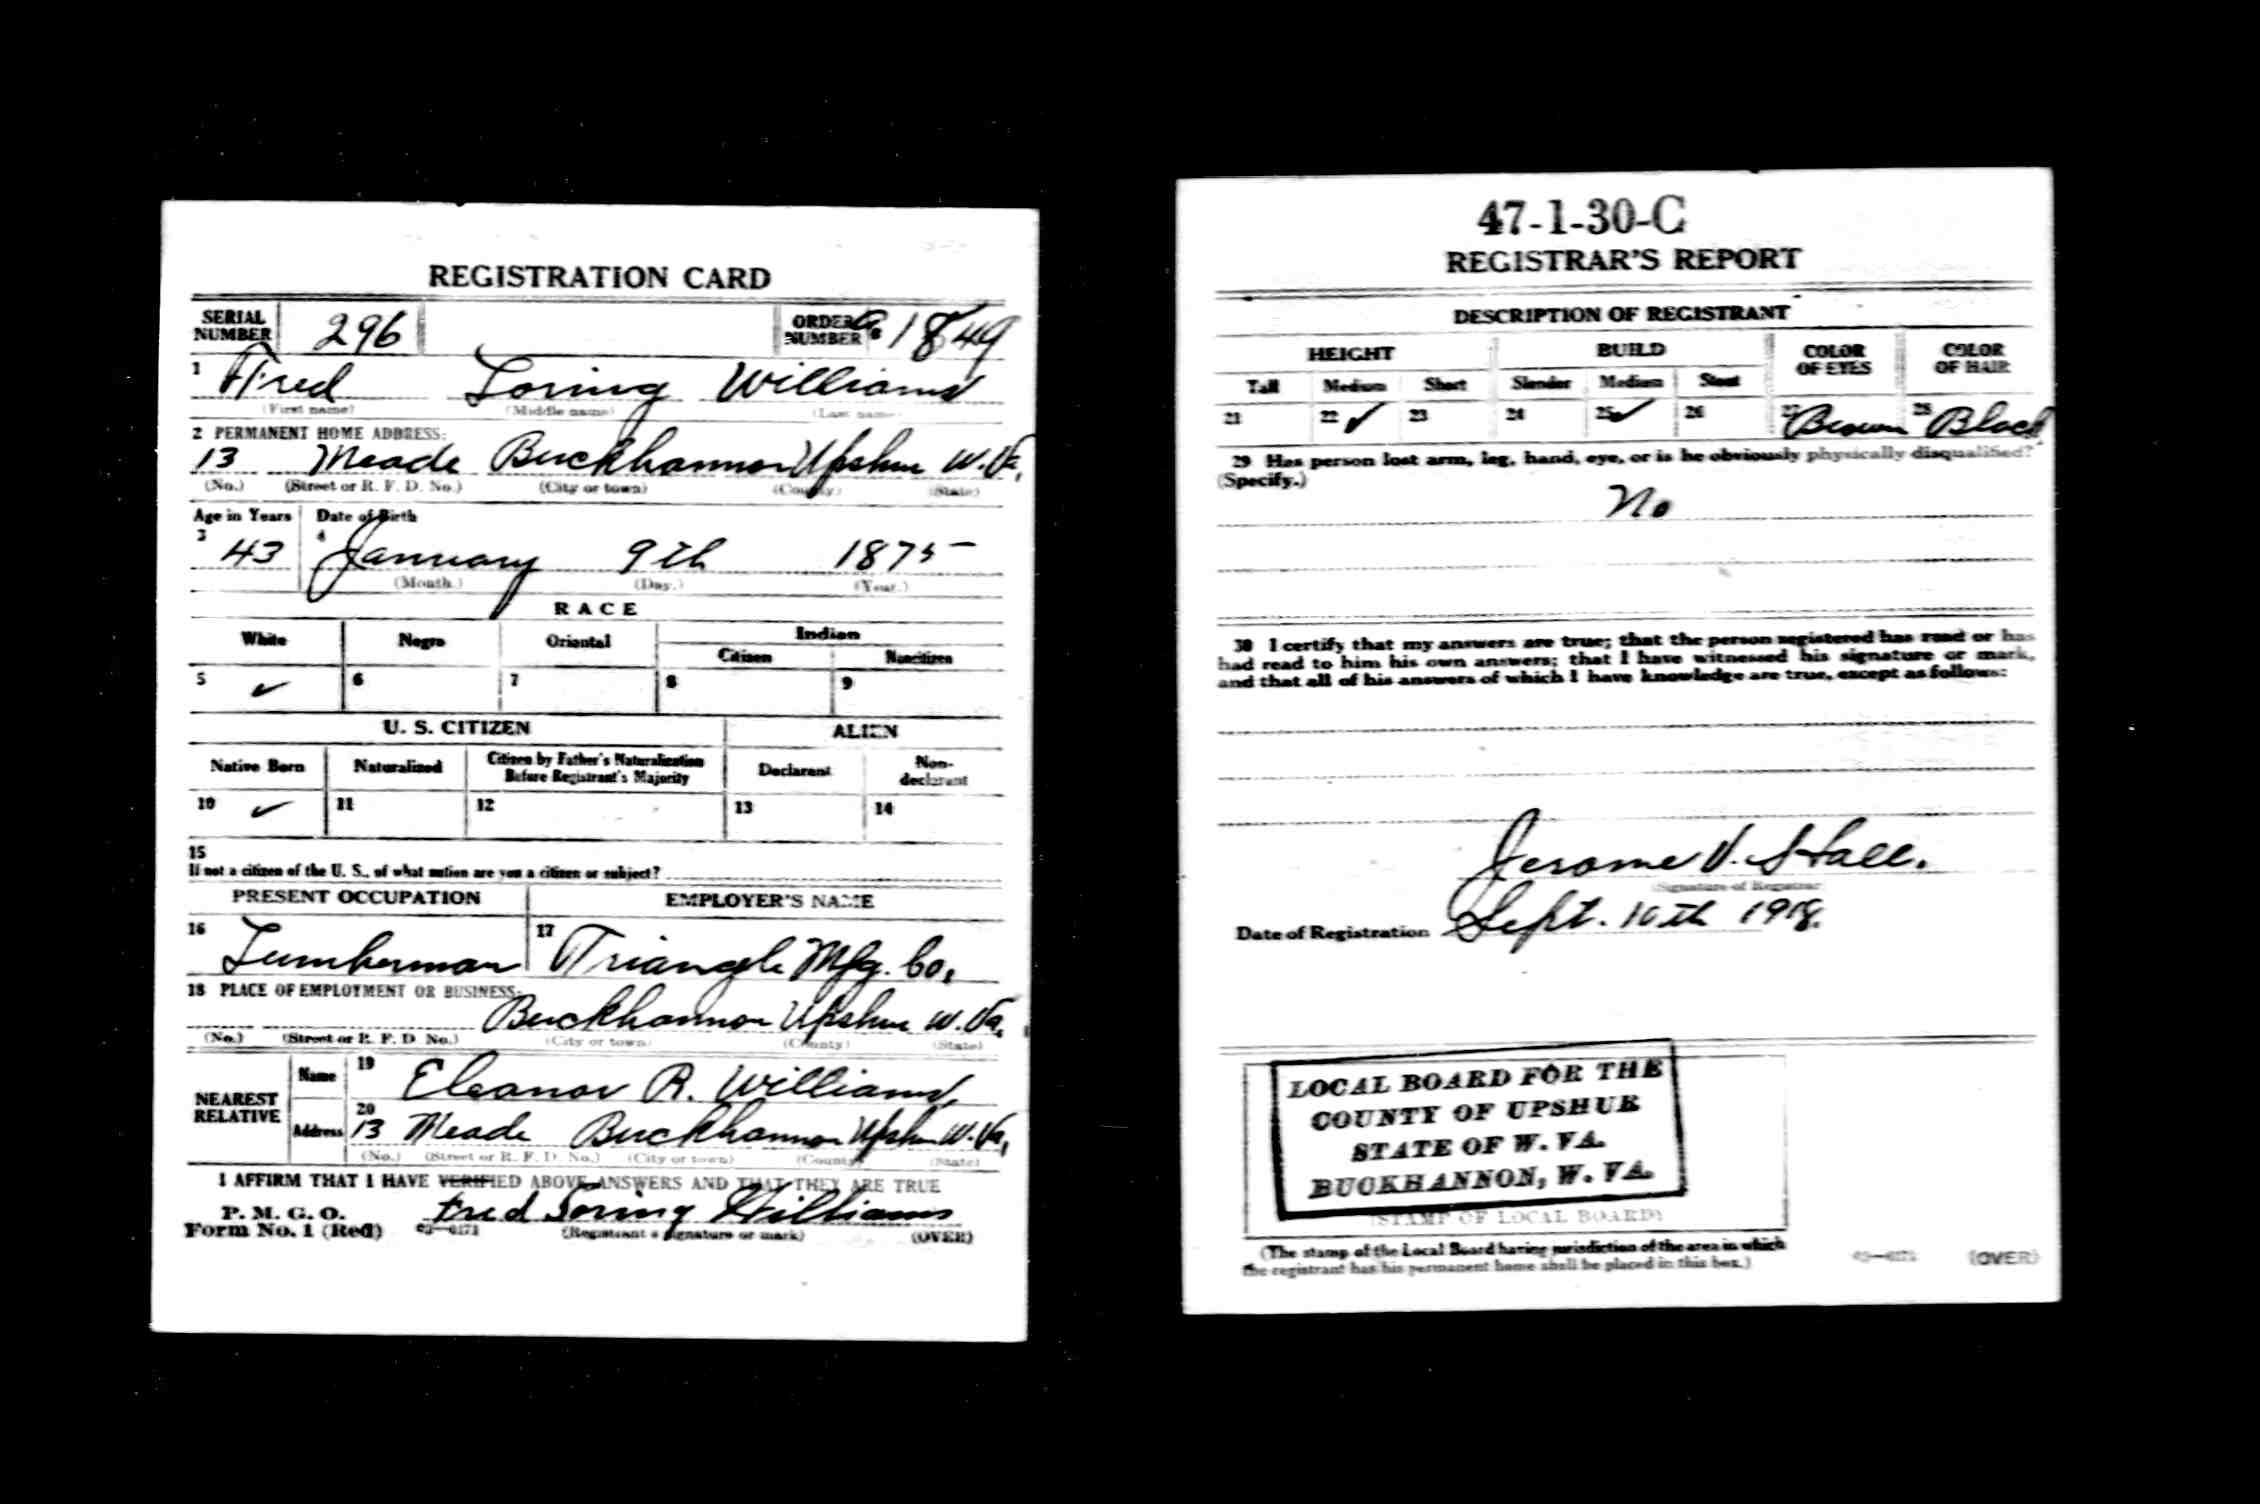 REGISTRATION CARD
SERIAL NUMBER 296 ORDER NUMBER 1849
1 Fred Loring Williams
(First name) (Middle name) (Last name)
2 PERMANENT HOME ADDRESS:
13 Meade Buckhannon Upshur W. Va.
(No.) (Street or R. F. D. No.) (City or town) (County) (State)
Age in Years Date of Birth
3 43 4 January 9th 1875
(Month.) (Day.) (Year.)
RACE
White Negro Oriental Indian
Citizen Noncitizen
5 ✓ 6 7 8 9
U. S. CITIZEN ALIEN
Native Born Naturalized Citizen by Father's Naturalization Before Registrant's Majority Declarant Non-declarant
10 ✓ 11 12 13 14
15
If not a citizen of the U. S., of what nation are you a citizen or subject?
PRESENT OCCUPATION EMPLOYER'S NAME
16 Lumberman 17 Triangle Mfg. Co.
18 PLACE OF EMPLOYMENT OR BUSINESS:
Buckhannon Upshur W. Va.
(No.) (Street or R. F. D. No.) (City or town) (County) (State)
NEAREST RELATIVE
Name 19 Eleanor R. Williams
Address 20 13 Meade Buckhannon Upshur W. Va.
(No.) (Street or R. F. D. No.) (City or town) (County) (State)
I AFFIRM THAT I HAVE VERIFIED ABOVE ANSWERS AND THAT THEY ARE TRUE
P. M. G. O.
Form No. 1 (Red) 03—6171 Fred Loring Williams
(Registrant's signature or mark) (OVER)
47-1-30-C
REGISTRAR'S REPORT
DESCRIPTION OF REGISTRANT
HEIGHT BUILD COLOR OF EYES COLOR OF HAIR
Tall Medium Short Slender Medium Stout
21 22 ✓ 23 24 25 ✓ 26 27 Brown 28 Black
29 Has person lost arm, leg, hand, eye, or is he obviously physically disqualified?
(Specify.)
No
30 I certify that my answers are true; that the person registered has read or has
had read to him his own answers; that I have witnessed his signature or mark,
and that all of his answers of which I have knowledge are true, except as follows:
Jerome V. Hall.
(Signature of Registrar)
Date of Registration Sept. 10th 1918.
LOCAL BOARD FOR THE
COUNTY OF UPSHUR
STATE OF W. VA.
BUCKHANNON, W. VA.
(STAMP OF LOCAL BOARD)
(The stamp of the Local Board having jurisdiction of the area in which
the registrant has his permanent home shall be placed in this box.)
03—6171 (OVER)